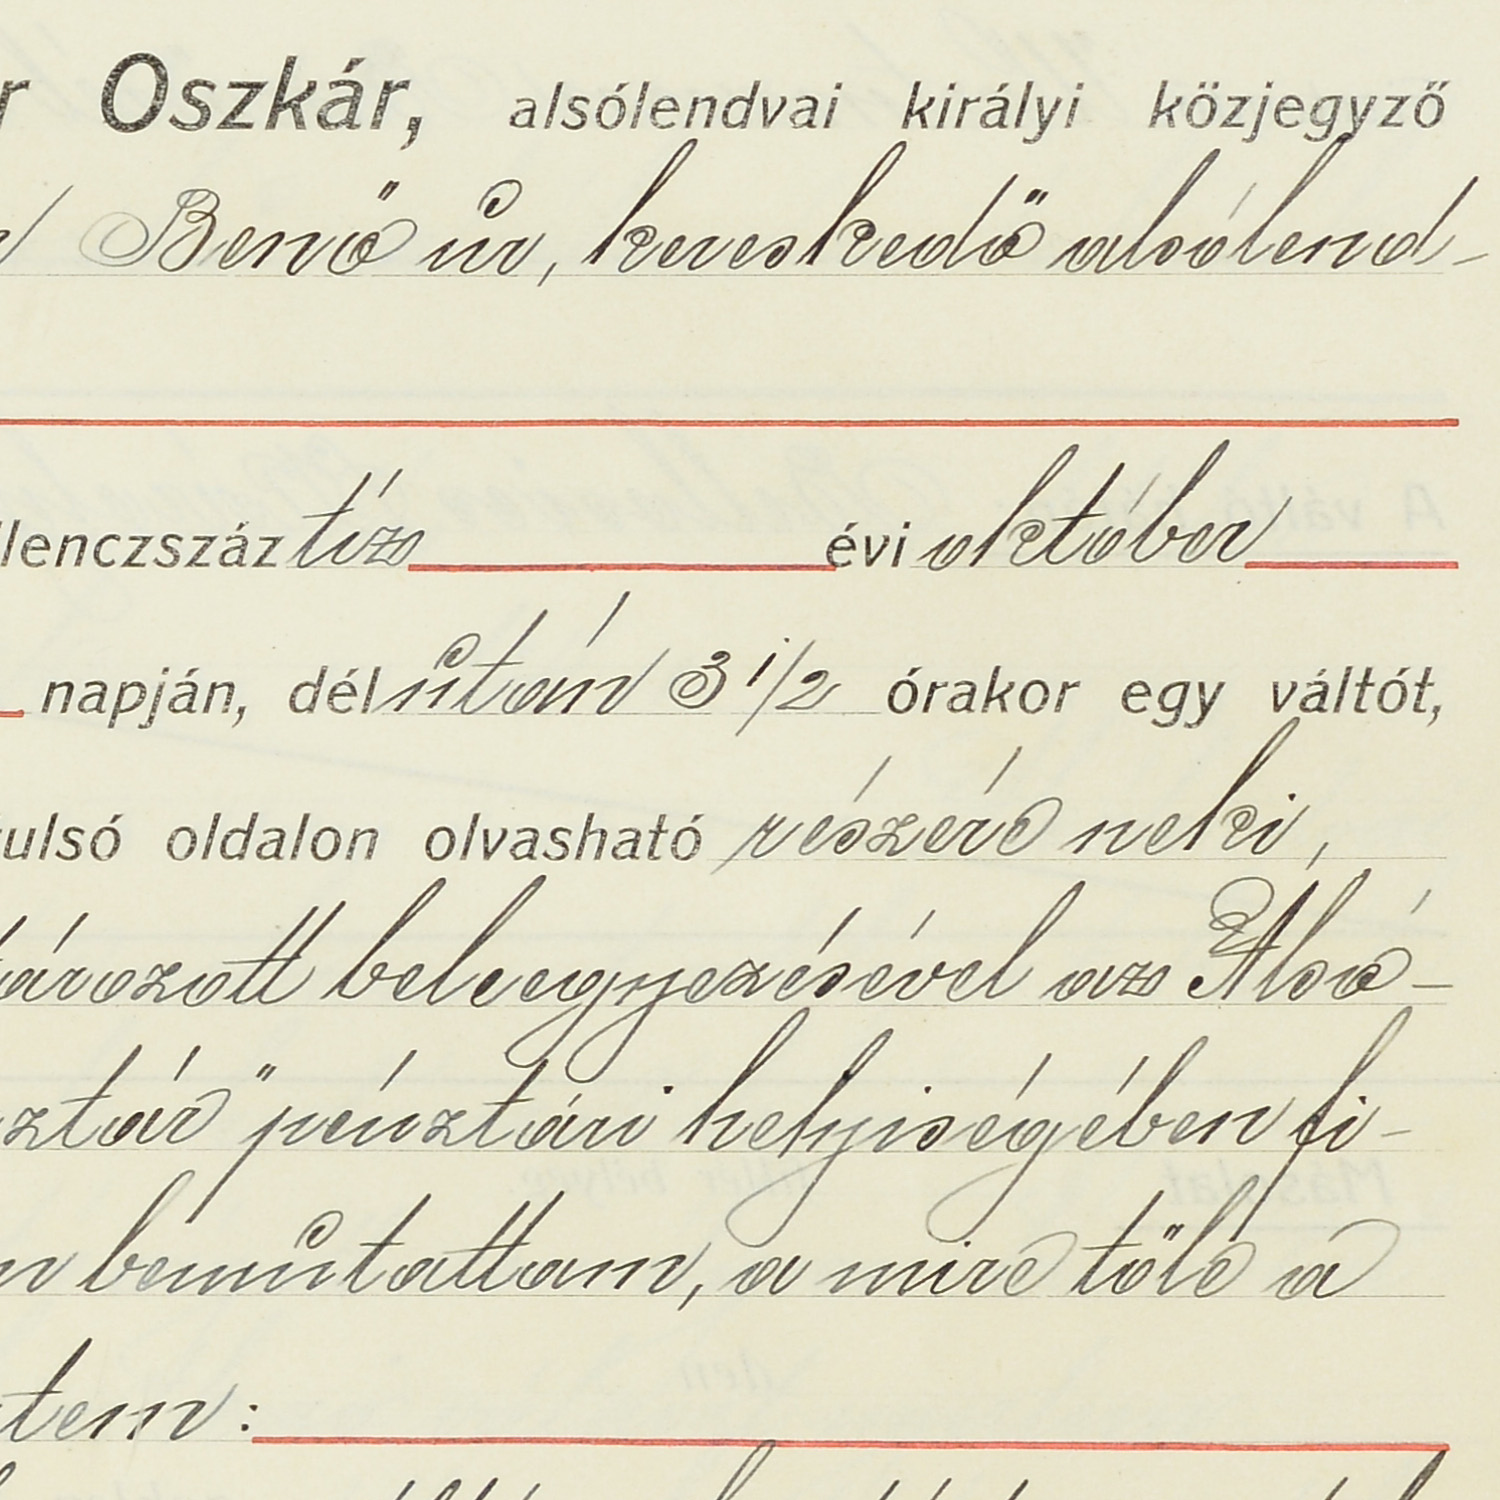 r Oszkár, alsólendvai királyi közjegyző
Benő úr, kereskedő alsólend-
lenczszáz tíz évi október
napján, délután 3 1/2 órakor egy váltót,
tulsó oldalon olvasható részére neki,
tározott beleegyezésével az „Alsó-
sztár" pénztári helyiségében fi-
n bemutattam, a mire tőle a
tem: